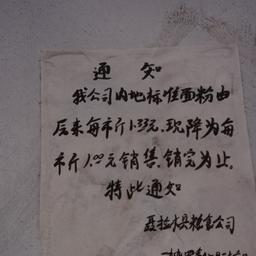 通 知
我公司内地标准面粉由
后来每市斤1.33元,现降为每
市斤1.00元销售,销完为止。
特此通知
聂拉木县粮食公司